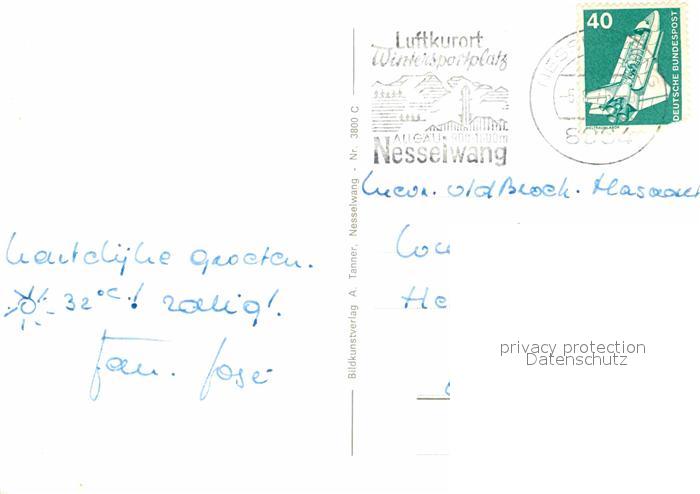 Luftkurort
Wintersportplatz
ALLGÄU · 900-1600m
Nesselwang
40
DEUTSCHE BUNDESPOST
WELTRAUMLABOR
Bildkunstverlag A. Tanner, Nesselwang - Nr. 3800 C
v/d Broek -
hartelijke groeten.
32°C! zalig!
Fam. José
He
privacy protection
Datenschutz